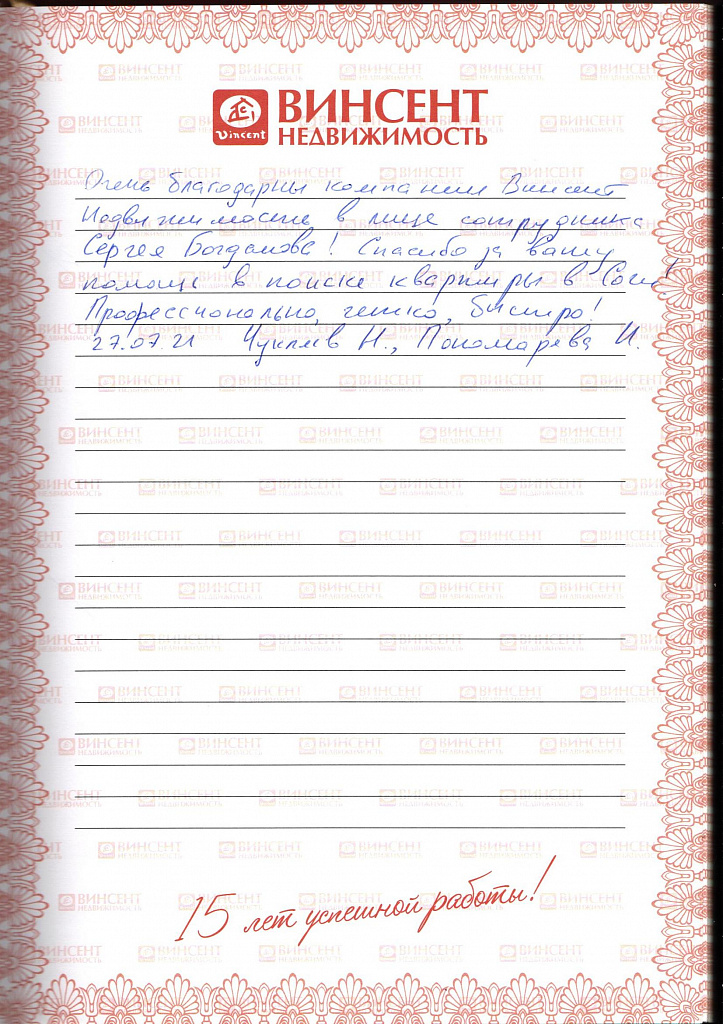 Vincent
ВИНСЕНТ
НЕДВИЖИМОСТЬ
Очень благодарны компании Винсент
Недвижимость в лице сотрудника
Сергея Богданова! Спасибо за вашу
помощь в поиске квартиры в Сочи!
Профессионально, четко, быстро!
27.07.21 Н., Пономарева И.
15 лет успешной работы!